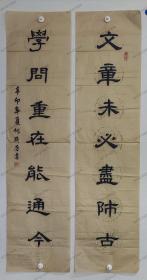 文章未必盡師古
學問重在能通今
辛卯年夏